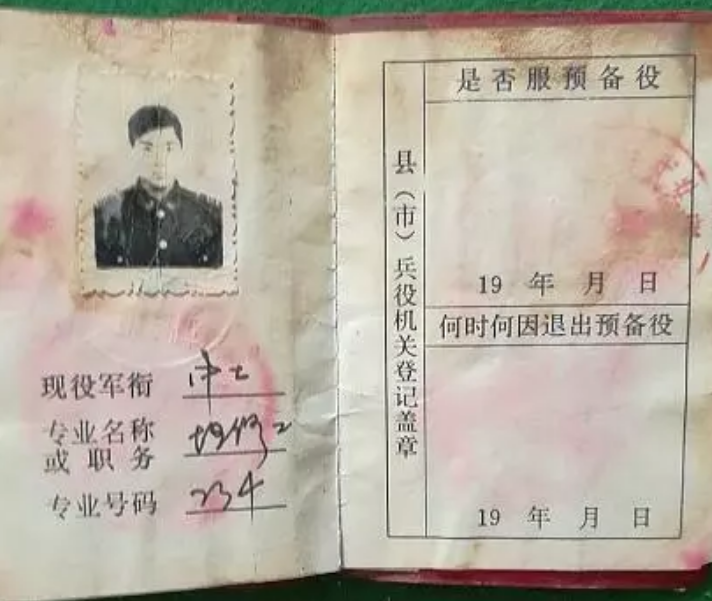 现役军衔 中士
专业名称
或职务
专业号码 234
县（市）兵役机关登记盖章
是否服预备役
19 年 月 日
何时何因退出预备役
19 年 月 日